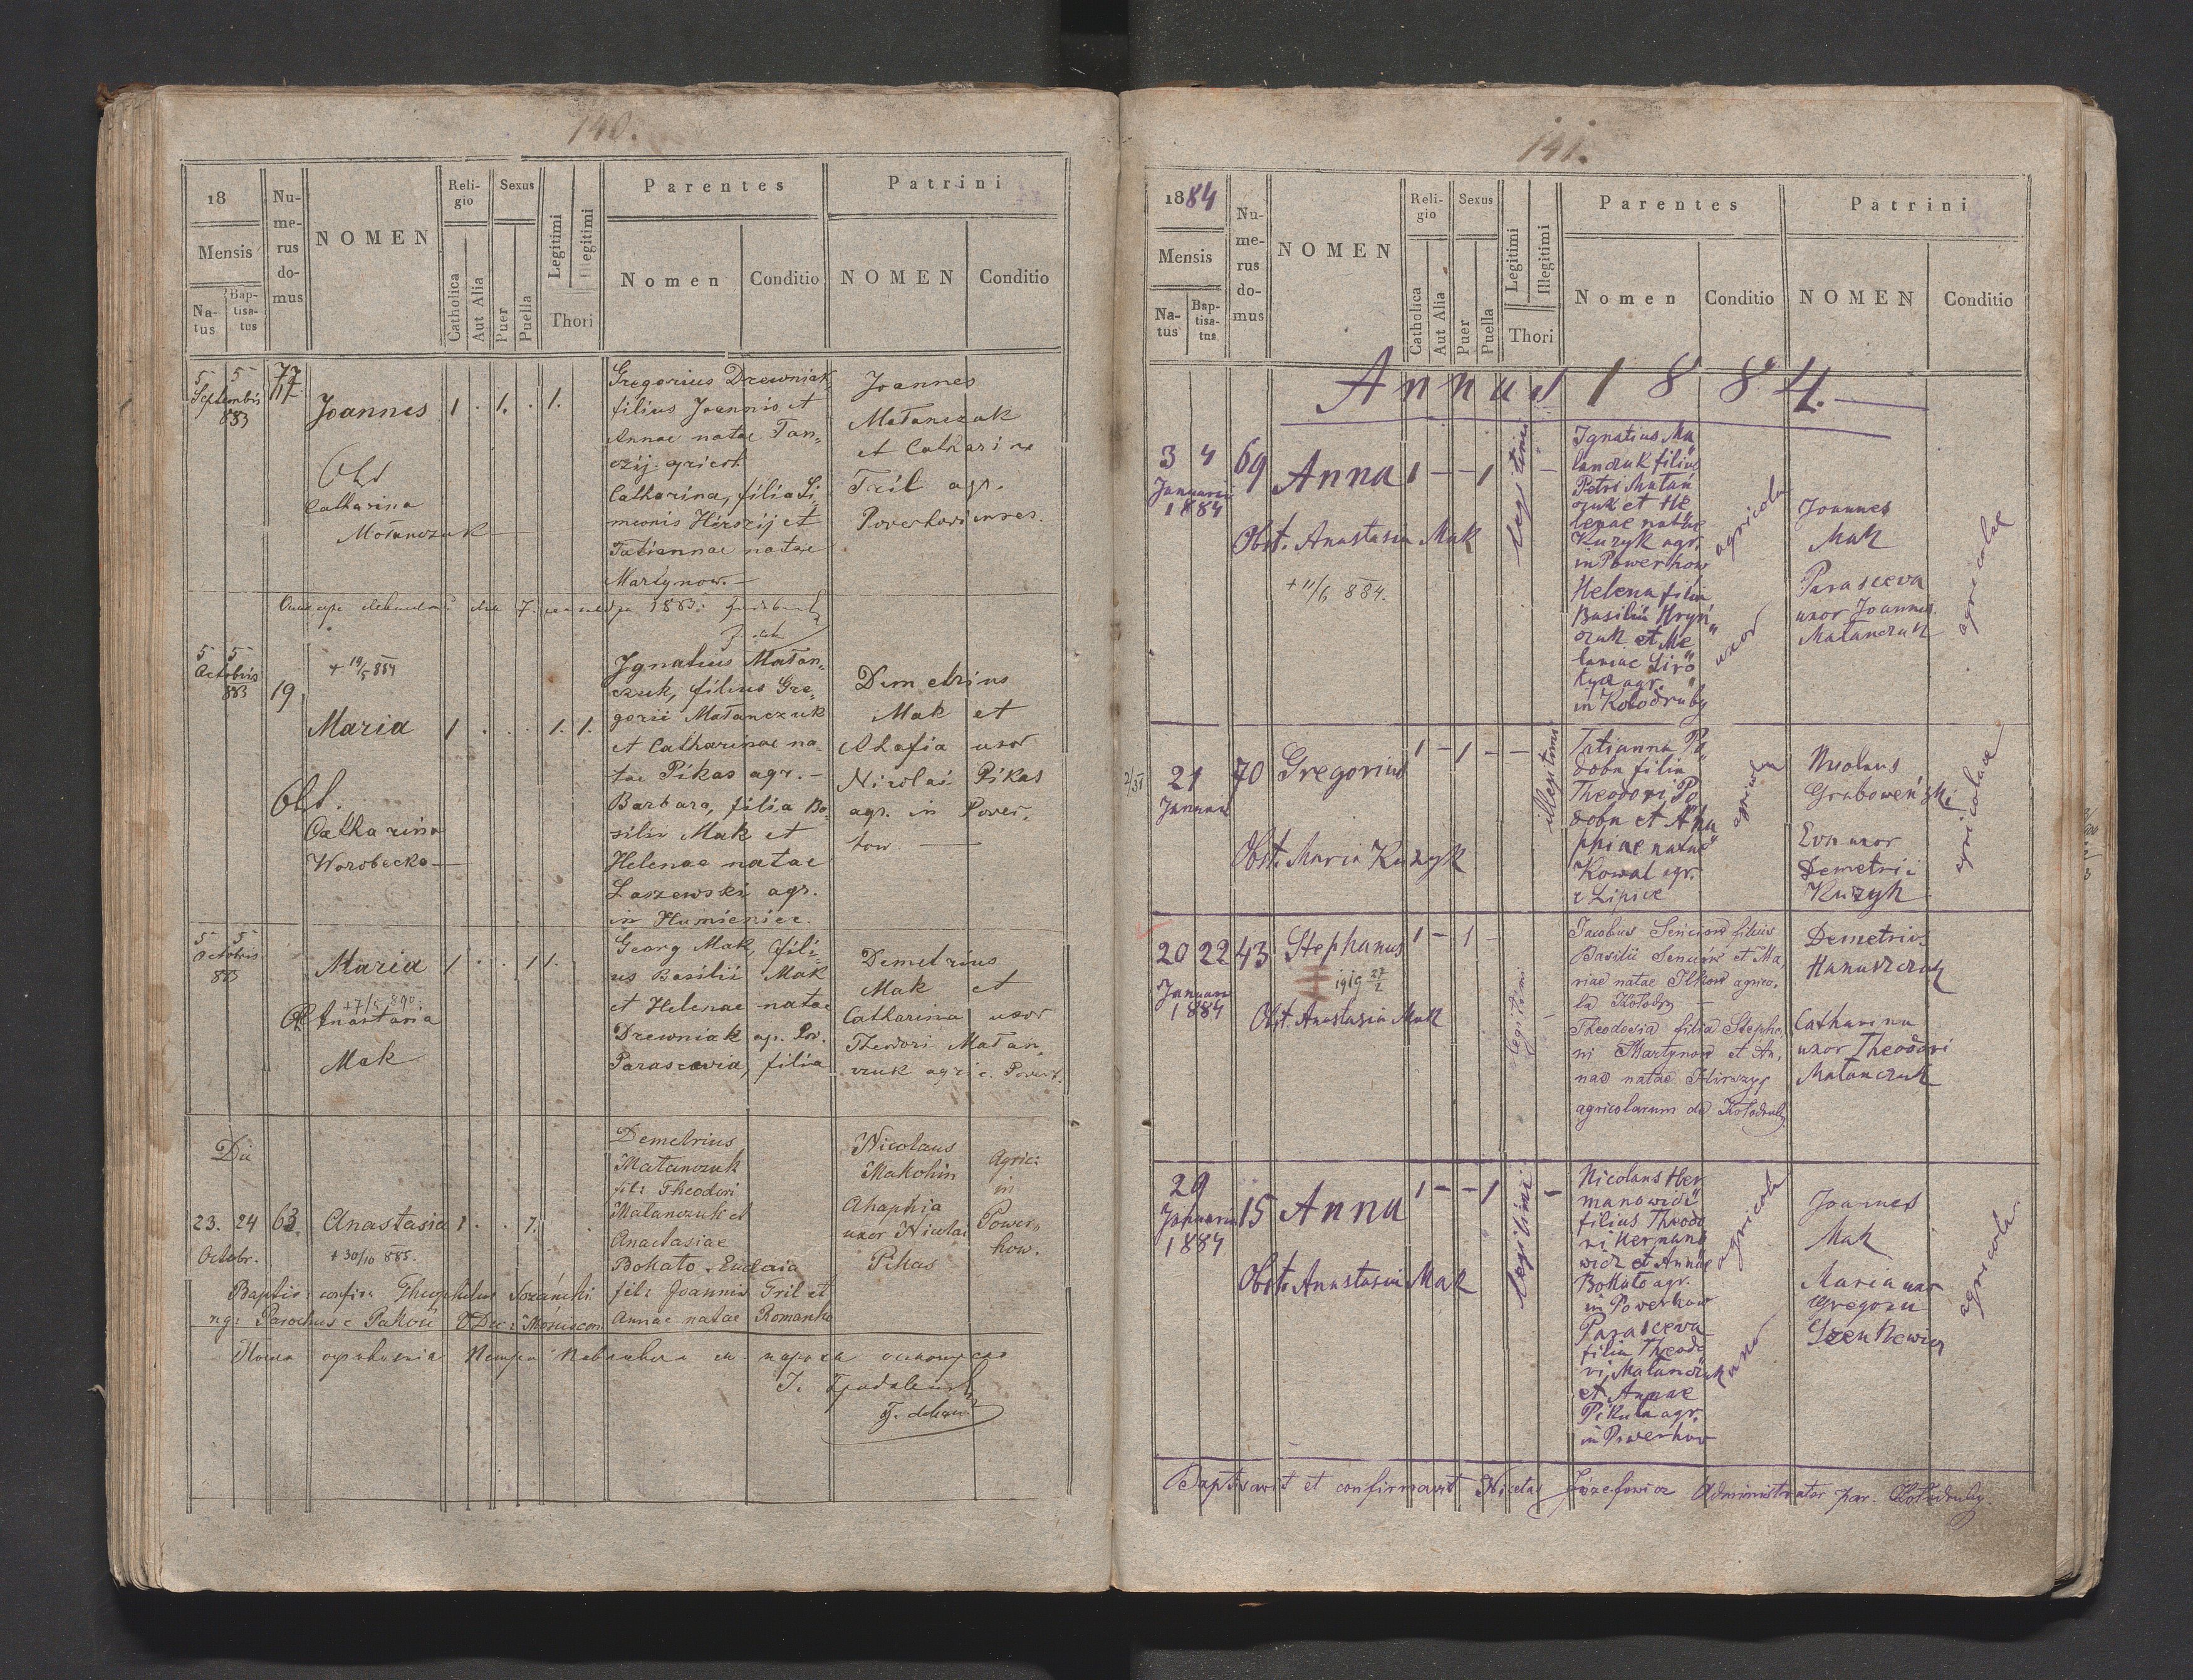 140.
18
Mensis
Na-
tus
Bap-
tisa-
tus
Nu-
me-
rus
do-
mus
NOMEN
Reli-
gio
Catholica
Aut Alia
Sexus
Puer
Puella
Legitimi
Illegitimi
Thori
Parentes
Nomen
Conditio
Patrini
NOMEN
Conditio
5 5
Septembris
883
77
Joannes
1 . 1. . 1.
Obst
Catharina
Mołanczuk
Gregorius Drewniak
filius Joannis et
Annae natae Tan„
czij. agricol
Catharina, filia Si„
meonis Hirszij et
Tatiannae natae
Martynow. —
Joannes
Matanczuk
et Catharina
Tril agr.
Powerhovienses.
7. 1883.
5 5
Octobris
883
19
+ 19/5 884
Maria
1 . . . 1. 1.
Obst.
Catharina
Worobecka —
Ignatius Matan„
czuk, filius Gre„
gorii Matanczuk
et Catharinae na„
tae Pikas agr. —
Barbara, filia Ba„
silii Mak et
Helenae natae
Laszewski agr.
in Humieniec.
Demetrius
Mak et
Ahafia uxor
Nicolai Pikas
agr. in Power„
how —
5 5
Octobris
883
Maria
1 . . 1 1.
+7/5 890.
Anastasia
Mak
Georg Mak, fili„
us Basilii Mak
et Helenae natae
Drewniak ag. Pow.
Parascevia, filia
Demetrius
Mak et
Catharina uxor
Theodori Matan„
czuk agric. Powerh.
Die
23. 24
Octobr.
63.
Anastasia
1 . . 1.
+ 30/10 885.
Demetrius
Matanczuk
fil: Theodori
Matanczuk et
Anastasiae
Bokało. Eudocia
fil: Joannis Tril et
Annae natae Romanko
Nicolaus
Makohin
Ahaphia
uxor Nicolai
Pikas
Agric:
in
Power„
how.
Baptis: confir: Theophilus
Parochus
141.
1884
Mensis
Na-
tus
Bap-
tisa-
tus
Nu-
me-
rus
do-
mus
NOMEN
Reli-
gio
Catholica
Aut Alia
Sexus
Puer
Puella
Legitimi
Illegitimi
Thori
Parentes
Nomen
Conditio
Patrini
NOMEN
Conditio
Annus 1884. —
3 4
Januarii
1884
69
Anna
1 — — 1
legitimi
Obst. Anastasia Mak
+ 11/6 884.
Ignatius Ma„
tanczuk filius
Petri Matan„
czuk et He
lenae natae
Kuzyk agr.
in Powerhow
Helena filia
Basilii Hryń„
czuk et Me„
laniae Siro„
tyca agr.
in Kołodruby
agricola
uxor
Joannes
Mak
Parasceva
uxor Joannis
Matanczuk
agricolae
21
Januarii
70
Gregorius
1 — 1 — —
illegitimi
Obst. Maria Kuzyk
Tatianna Po„
doba filia
Theodori Po„
doba et Aha„
phiae natae
Kowal agr.
z Lipice
Nicolaus
Graboweński
Eva uxor
Demetrii
Kuzyk
agricolae
20 22
Januarii
1884
43
Stephanus
1 — 1 —
1919 27/2
legitimi
Obst. Anastasia Mak
Jacobus Senciow filius
Basilii Senciów et Ma„
riae natae Ilkow agrico„
la
Theodosia filia Stepha„
ni Martynow et An„
nae natae Hirszyj
agricolarum de Kołodruby
Demetrius
Hanuszczak
Catharina
uxor Theodori
Matanczuk
29
Januarii
1884
15
Anna
1 — — 1
legitimi
Obst. Anastasia Mak
Nicolaus Her„
manowicz
filius Theodo
ri Hermano
wicz et Annae
Bokało agr.
in Powerhow
Parasceva
filia Theodo
ri Matanczuk
et Annae
Pikula agr.
in Powerhow
agricola
uxor
Joannes
Mak
Maria uxor
Gregorii
agricola
Baptisavit et confirmavit Nicetas Józefowicz Administrator par. Kołodruby.